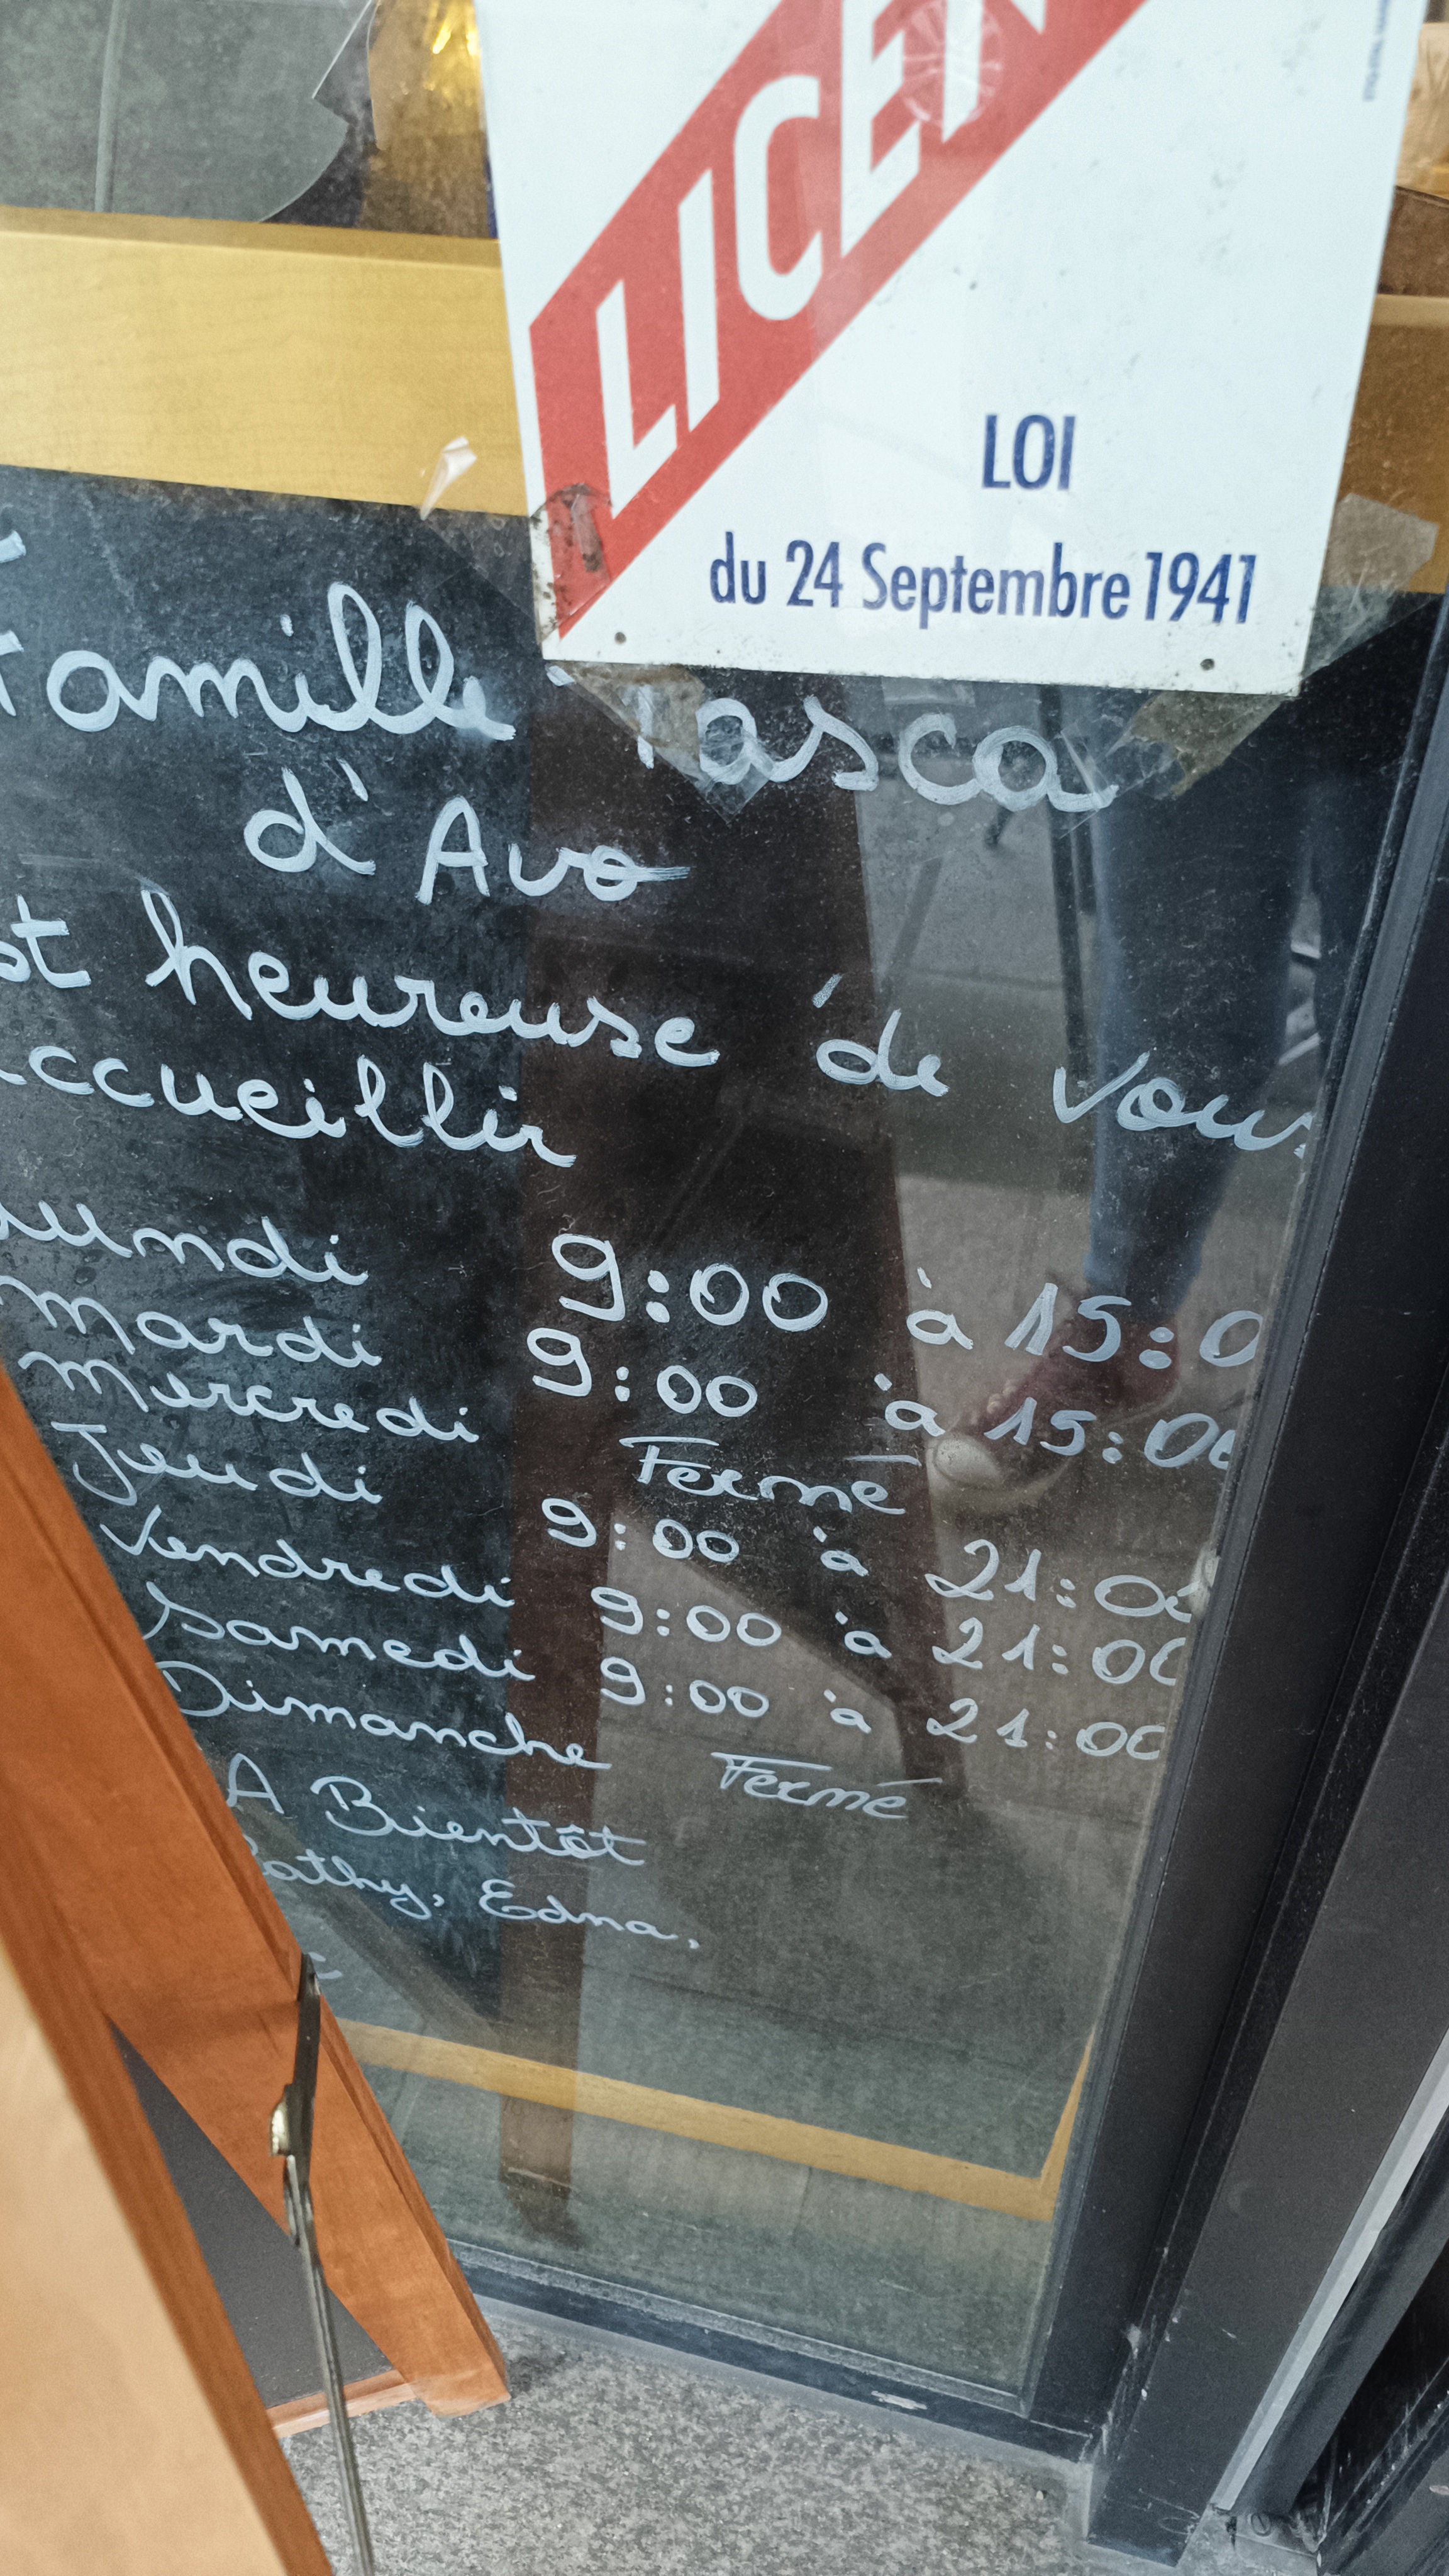 LICEN
LOI
du 24 Septembre 1941
Famille Tasca
d'Avo
st heureuse de vous
ccueillir
Lundi 9:00 à 15:0
Mardi 9:00 à 15:00
Mercredi Fermé
Jeudi 9:00 à 21:00
Vendredi 9:00 à 21:00
Samedi 9:00 à 21:00
Dimanche Fermé
A Bientôt
Cathy, Edna,